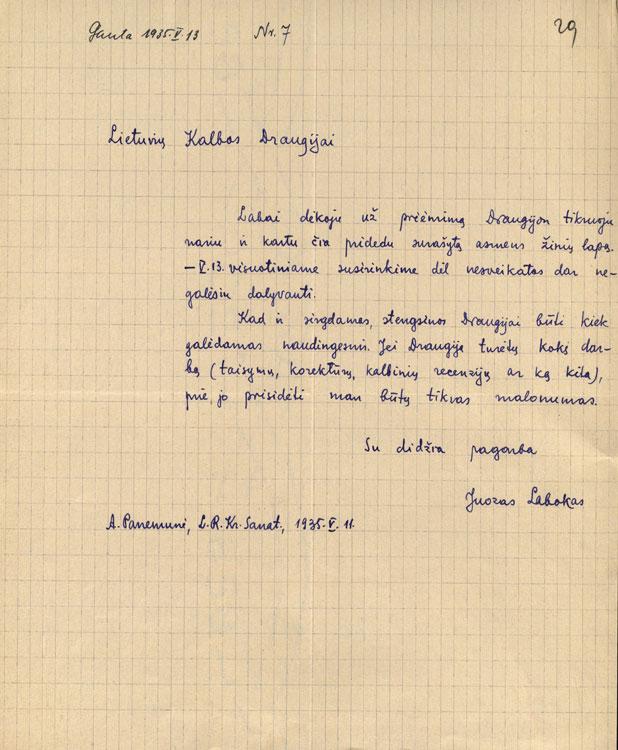 Gauta 1935.V.13 Nr. 7
29
Lietuvių Kalbos Draugijai
Labai dėkoju už priėmimą Draugijon tikruoju
nariu ir kartu čia pridedu surašytą asmens žinių lapą.
— V.13. visuotiniame susirinkime dėl nesveikatos dar ne-
galėsiu dalyvauti.
Kad ir sirgdamas, stengsiuos Draugijai būti kiek
galėdamas naudingesnis. Jei Draugija turėtų kokį dar-
bą (taisymų, korektūrų, kalbinių recenzijų ar ką kita),
prie jo prisidėti man būtų tikras malonumas.
Su didžia pagarba
Juozas Labokas
A. Panemunė, L.R.Kr. Sanat., 1935.V.11.